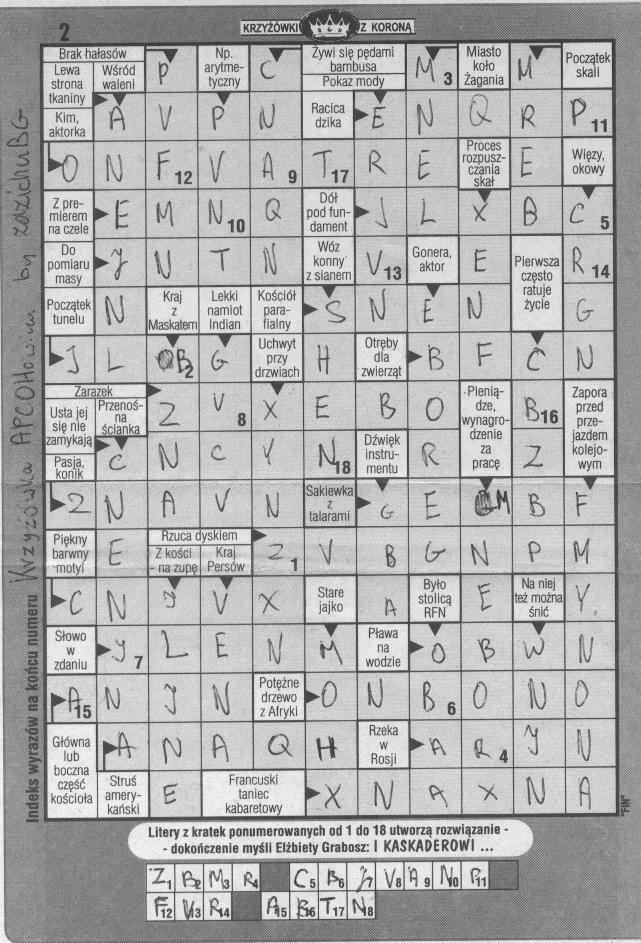 2
KRZYŻÓWKI Z KORONĄ
Brak hałasów
Lewa strona tkaniny
Wśród waleni
P
Np. arytmetyczny
C
Żywi się pędami bambusa
Pokaz mody
M 3
Miasto koło Żagania
M
Początek skali
Kim, aktorka
A V P N
Racica dzika
E N Q R P 11
O N F 12 V A 9 T 17 R E
Proces rozpuszczania skał
E
Więzy, okowy
Z premierem na czele
E M N 10 Q
Dół pod fundament
J L X B C 5
Do pomiaru masy
J N T N
Wóz konny z sianem
V 13
Gonera, aktor
E
Pierwsza często ratuje życie
R 14
Początek tunelu
N
Kraj z Maskatem
Lekki namiot Indian
Kościół parafialny
S N E N G
J L B 2 G
Uchwyt przy drzwiach
H
Otręby dla zwierząt
B F C N
Zarazek
Usta jej się nie zamykają
Przenośna ścianka
Z V 8 X E B O
Pieniądze, wynagrodzenie za pracę
B 16
Zapora przed przejazdem kolejowym
Pasja, konik
C N C Y N 18
Dźwięk instrumentu
R Z
Z N A V N
Sakiewka z talarami
G E M B F
Piękny barwny motyl
E
Rzuca dyskiem
Z kości - na zupę
Kraj Persów
Z 1 V B G N P M
C N J V X
Stare jajko
A
Było stolicą RFN
E
Na niej też można śnić
Y
Słowo w zdaniu
J 7 L E N M
Pława na wodzie
O B W N
A 15 N J N
Potężne drzewo z Afryki
O N B 6 O N O
Główna lub boczna część kościoła
A N A Q H
Rzeka w Rosji
A R 4 J N
Struś amerykański
E
Francuski taniec kabaretowy
X N A X N A
"FIN"
Indeks wyrazów na końcu numeru
Krzyżówka APCOHowicza by zdzichuBG
Litery z kratek ponumerowanych od 1 do 18 utworzą rozwiązanie -
- dokończenie myśli Elżbiety Grabosz: I KASKADEROWI ...
Z1 B2 M3 R4 C5 B6 J7 V8 A9 N10 P11
F12 V13 R14 A15 B16 T17 N18